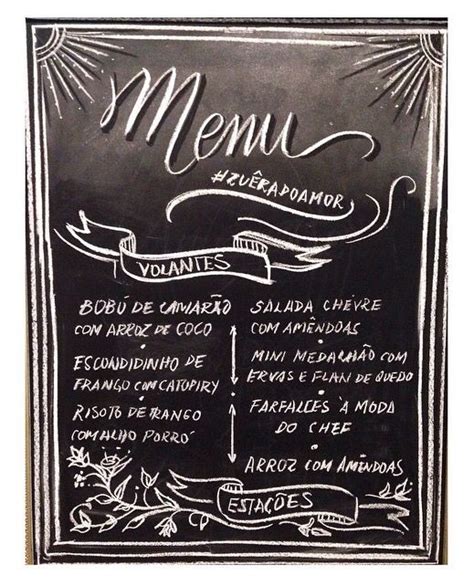 Menu
#ZUÊRADOAMOR
VOLANTES
BOBÓ DE CAMARÃO
COM ARROZ DE COCO
ESCONDIDINHO DE
FRANGO COM CATOPIRY
RISOTO DE FRANGO
COM ALHO PORRÓ
SALADA CHÈVRE
COM AMÊNDOAS
MINI MEDALHÃO COM
ERVAS E FLAN DE QUEIJO
FARFALLES À MODA
DO CHEF
ARROZ COM AMÊNDOAS
ESTAÇÕES